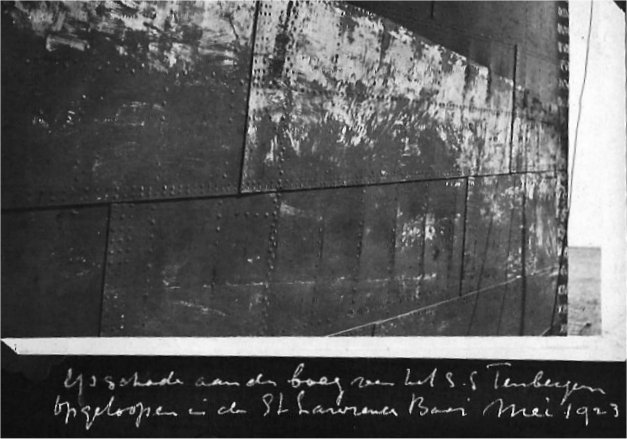 Ijsschade aan den boeg van het S.S Tenbergen
opgeloopen in de St Lawrence Baai Mei 1923